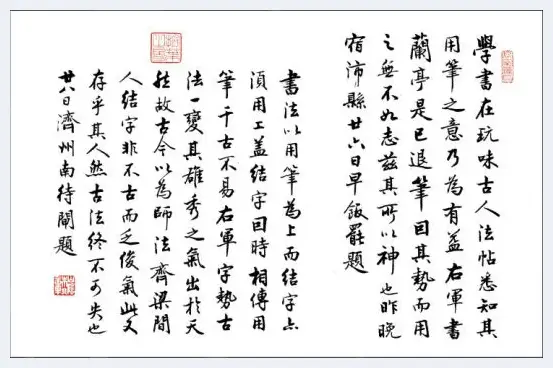 學書在玩味古人法帖悉知其
用筆之意乃為有益右軍書
蘭亭是已退筆因其勢而用
之無不如志茲其所以神也昨晚
宿沛縣廿六日早飯罷題
書法以用筆為上而結字亦
須用工蓋結字因時相傳用
筆千古不易右軍字勢古
法一變其雄秀之氣出於天
然故古今以為師法齊梁間
人結字非不古而乏俊氣此又
存乎其人然古法終不可失也
廿八日濟州南待閘題